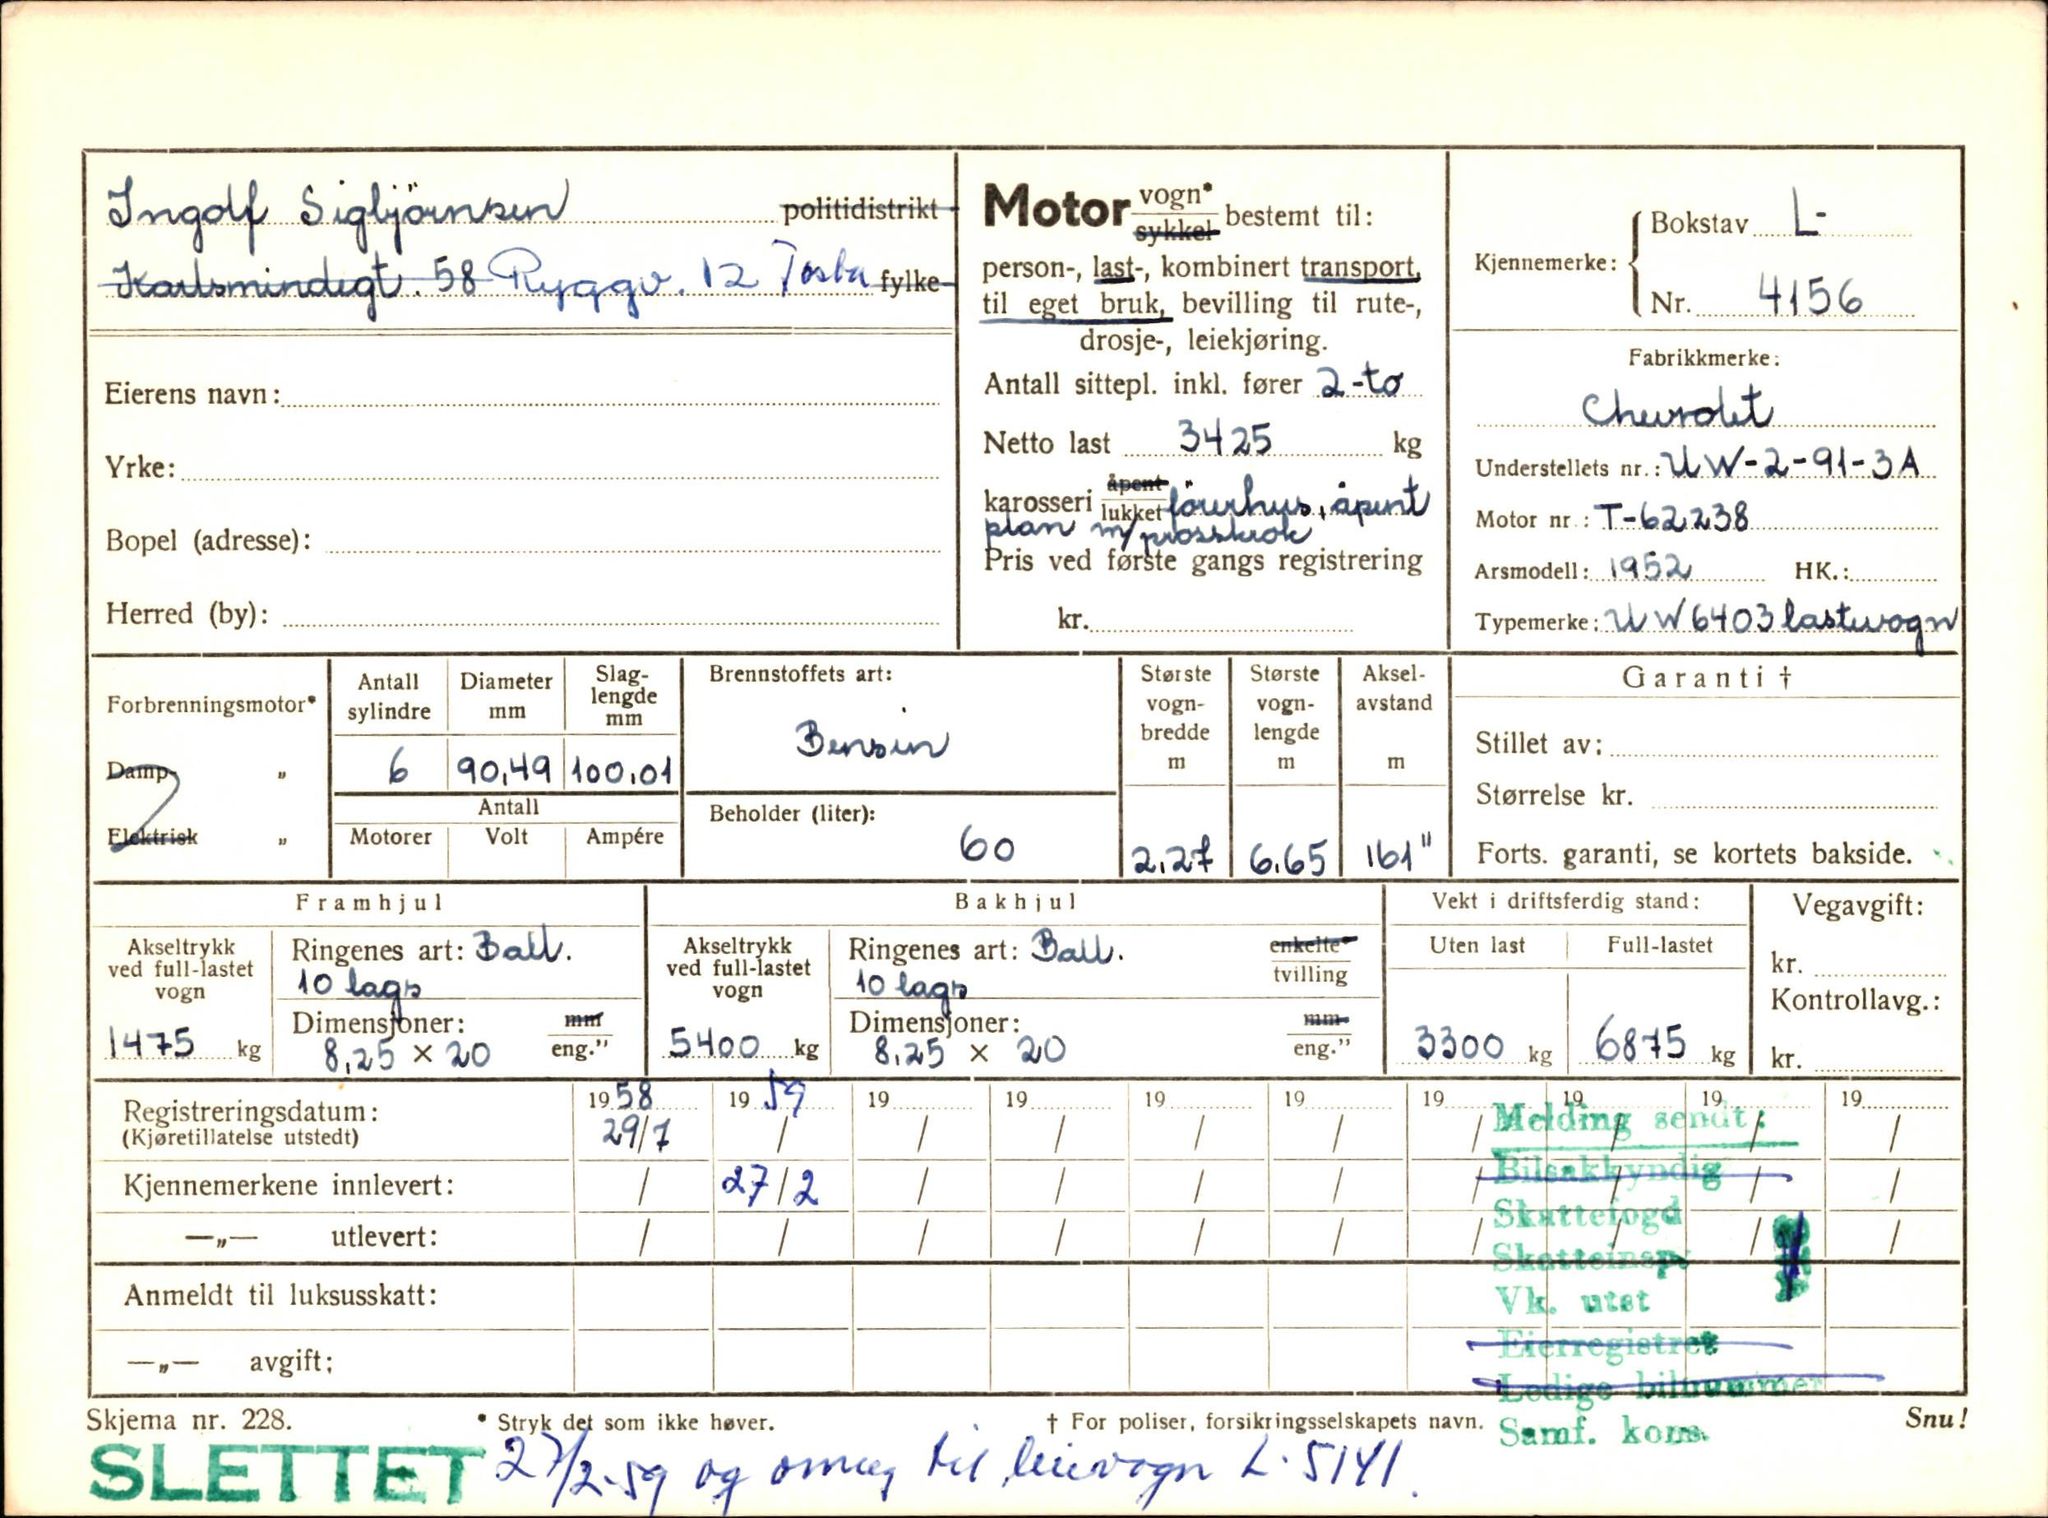 Ingolf Sigbjörnsen politidistrikt
Karlsmindegt. 58 Ryggv. 12 Tosba fylke
Eierens navn:
Yrke:
Bopel (adresse):
Herred (by):
Motor vogn* sykkel bestemt til:
person-, last-, kombinert transport,
til eget bruk, bevilling til rute-,
drosje-, leiekjøring.
Antall sittepl. inkl. fører 2-to
Netto last 3425 kg
karosseri åpent lukket förerhus, åpent
plan m/prosskrok
Pris ved første gangs registrering
kr.
Kjennemerke: Bokstav L-
Nr. 4156
Fabrikkmerke:
Chevrolet
Understellets nr.: UW-2-91-3A
Motor nr.: T-62238
Arsmodell: 1952 HK.:
Typemerke: UW6403 lastevogn
Forbrenningsmotor*
Damp- „
Elektrisk „
Antall sylindre
6
Diameter mm
90,49
Slaglengde mm
100,01
Antall
Motorer Volt Ampére
Brennstoffets art:
Bensin
Beholder (liter):
60
Største vogn-bredde m
2,27
Største vogn-lengde m
6,65
Aksel-avstand m
161"
Garanti †
Stillet av:
Størrelse kr.
Forts. garanti, se kortets bakside.
Framhjul
Akseltrykk ved full-lastet vogn
1475 kg
Ringenes art: Ball.
10 lags
Dimensjoner: mm eng."
8,25 × 20
Bakhjul
Akseltrykk ved full-lastet vogn
5400 kg
Ringenes art: Ball. enkelte* tvilling
10 lags
Dimensjoner: mm eng."
8,25 × 20
Vekt i driftsferdig stand:
Uten last Full-lastet
3300 kg 6875 kg
Vegavgift:
kr.
Kontrollavg.:
kr.
Registreringsdatum: 1958 1959 19 19 19 19 19 19 19 19
(Kjøretillatelse utstedt) 29/7 / / / / / / / / /
Kjennemerkene innlevert: / 27/2 / / / / / / / /
—„— utlevert: / / / / / / / / / /
Anmeldt til luksusskatt:
—„— avgift:
Melding sendt:
Bilsakkyndig
Skattefogd
Skatteinsp.
Vk. utst
Eierregistret
Ledige bilnummer
Samf. kons.
Skjema nr. 228. * Stryk det som ikke høver. † For poliser, forsikringsselskapets navn. Snu!
SLETTET 27/2-59 og omreg til leievogn L-5141.